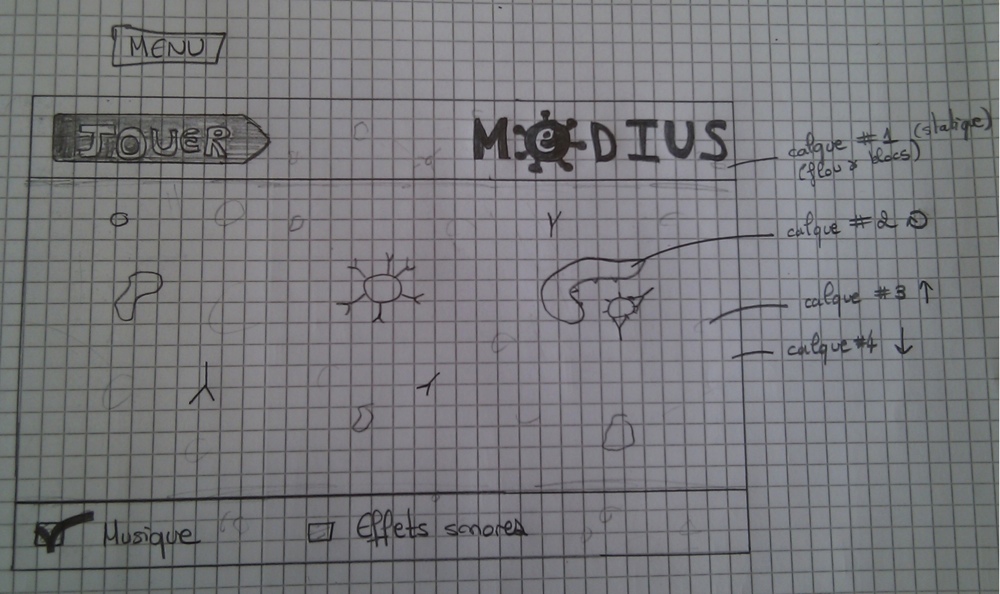 MENU
JOUER
MeDIUS
calque #1 (statique)
(flou + blocs)
calque #2
calque #3 ↑
calque #4 ↓
Musique
Effets sonores